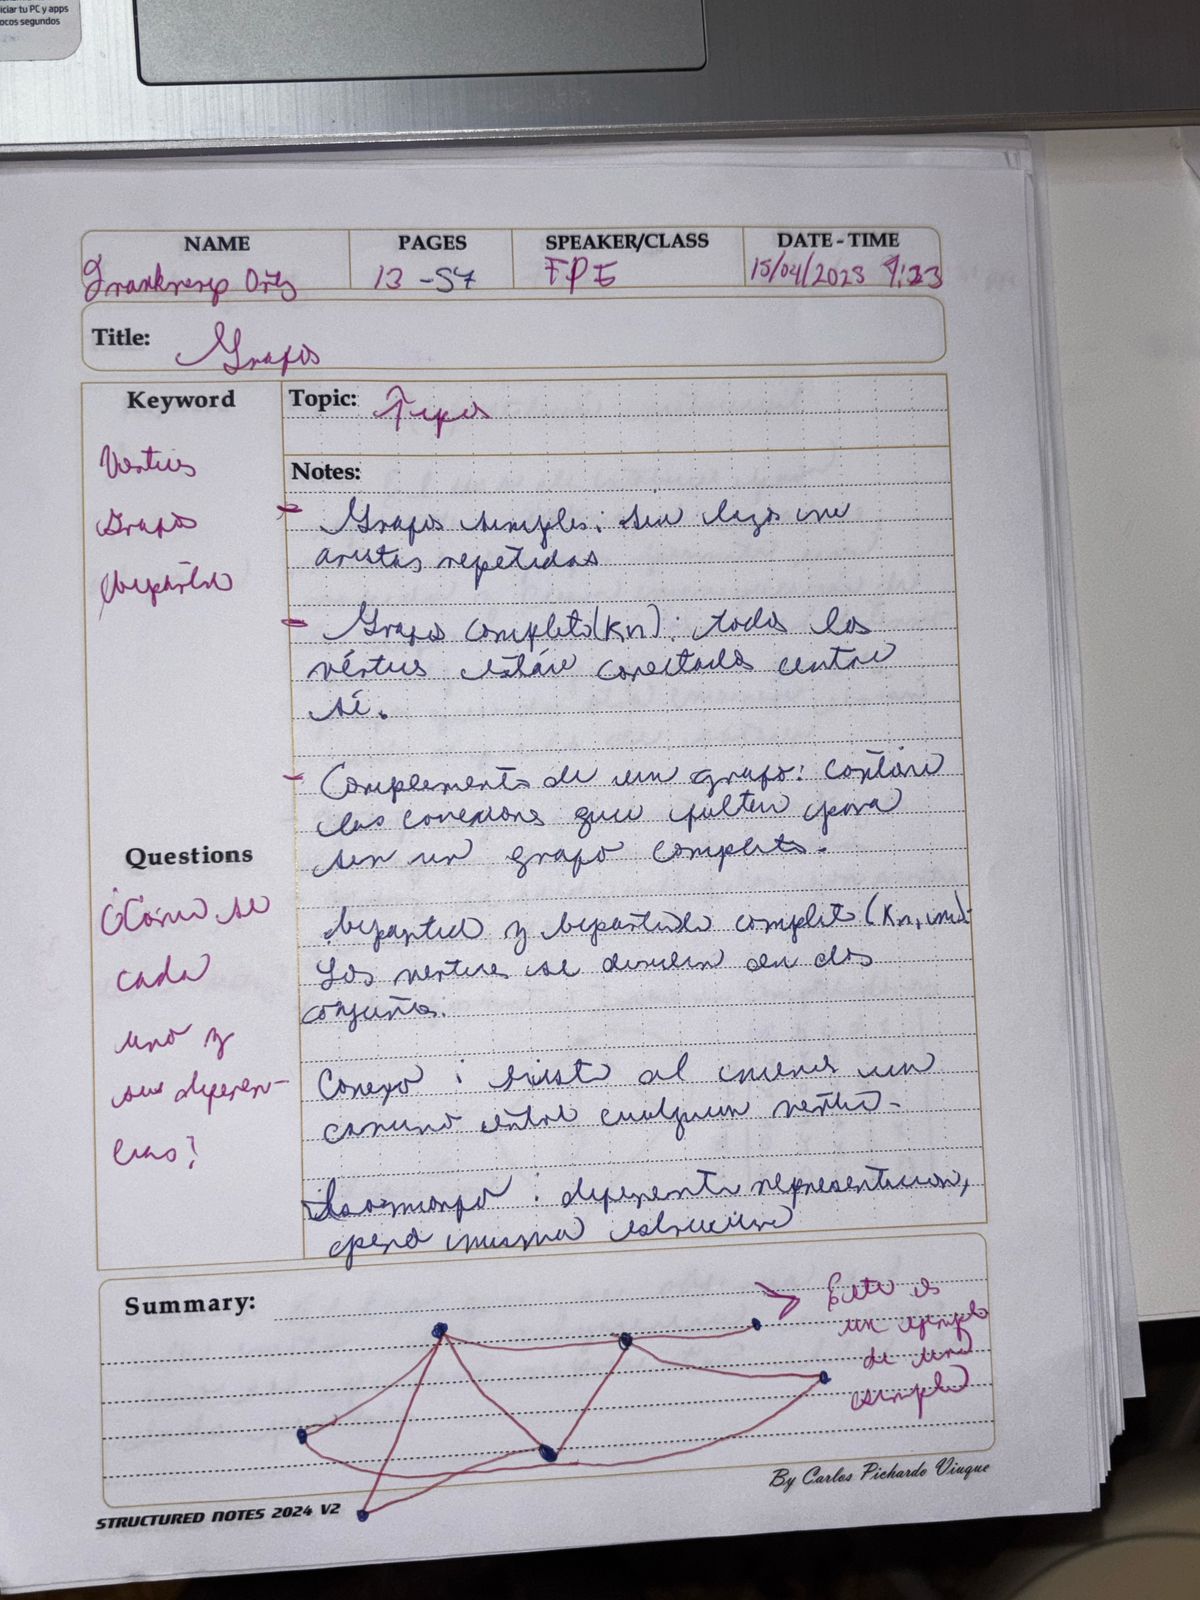 iciar tu PC y apps
ocos segundos
NAME
PAGES
SPEAKER/CLASS
DATE - TIME
13 - 57
FPE
15/04/2023 9:23
Title: Grafos
Keyword
Topic: Tipos
Vertices
Grafos
bipartido
Notes:
- Grafos simples: sin lazos ni
aristas repetidas
- Grafos completo (Kn): todos los
vértices están conectados entre
sí.
- Complemento de un grafo: contiene
las conexiones que faltan para
ser un grafo completo.
bipartido y bipartido completo (Kn, m):
Los vertices se dividen en dos
conjuntos.
Conexo: existe al menos un
camino entre cualquier vertice.
Isomorfo: diferente representacion,
pero misma estructura
Questions
¿Cómo se
cada
uno y
sus diferen-
cias?
Summary:
> Este es
un ejemplo
de uno
simple
By Carlos Pichardo Viuque
STRUCTURED NOTES 2024 V2